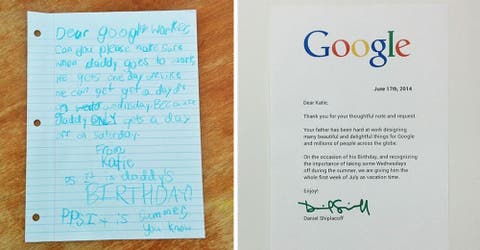 Dear google worker,
Can you please make sure
when daddy goes to work,
he gets one day off. Like
he can get a day off
on wednesday. Because
daddy ONLY gets a day
off on saturday.
From,
Katie
as it is daddy's
BIRTHDAY!
PPS. It is summer,
you know
Google
June 17th, 2014
Dear Katie,
Thank you for your thoughtful note and request.
Your father has been hard at work designing
many beautiful and delightful things for Google
and millions of people across the globe.
On the occasion of his Birthday, and recognizing
the importance of taking some Wednesdays
off during the summer, we are giving him the
whole first week of July as vacation time.
Enjoy!
Daniel Shiplacoff